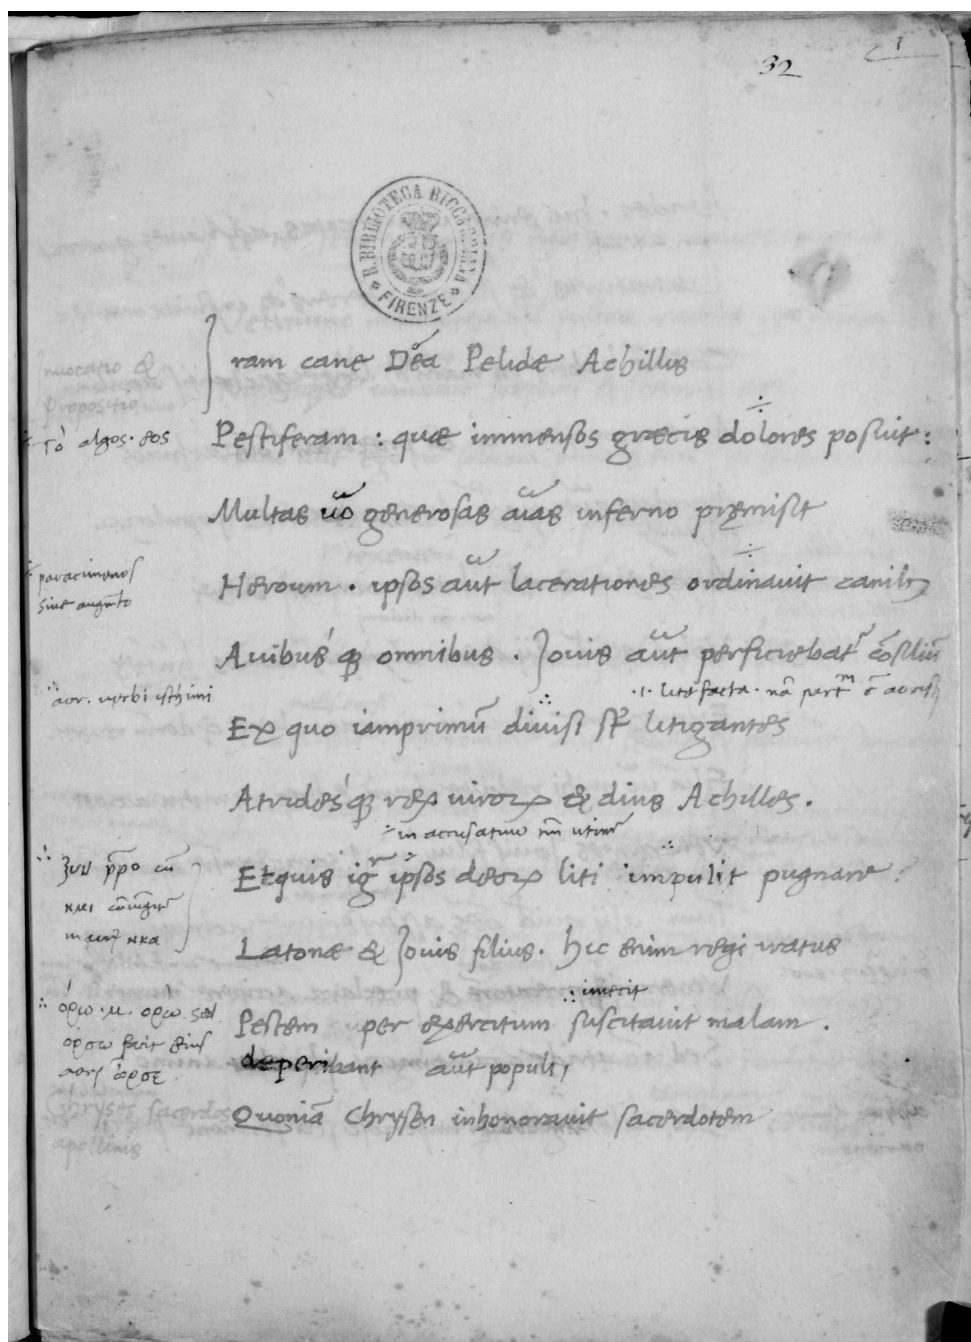 32
1
R. BIBLIOTECA RICCARDIANA
FIRENZE
nuocatio &
propositio
ram cane Dea Pelidæ Achillis
τὸ algos · eos
Pestiferam : quæ immensos græcis dolores posuit :
Multas u͞o generosas a͞ias inferno pręmisit
paracimenos
sine augm̄to
Heroum . ipsos au͞t lacerationes ordinauit canibꝫ
Auibuś qꝫ omnibus . Jouis au͞t perficiebat᷑ co͞siliu͞
aor. uerbi isthimi
Ex quo iamprimu͞ diuisi st᷑ litigantes
Atrideś qꝫ rex uiroꝝ & dius Achilles .
in accusatiuo
Etquis ig᷑ ipsos deoꝝ liti impulit pugnare
Latonæ & Jouis filius . hic enim regi iratus
iniecit
ὄρω · μ . ορσω sed
ορσω facit eius
aor; ὦρσε
Pestem per exercitum suscitauit malam .
deperibant au͞t populi,
Chryses sacerdos
apollinis
Quonia͞ Chrysen inhonorauit sacerdotem